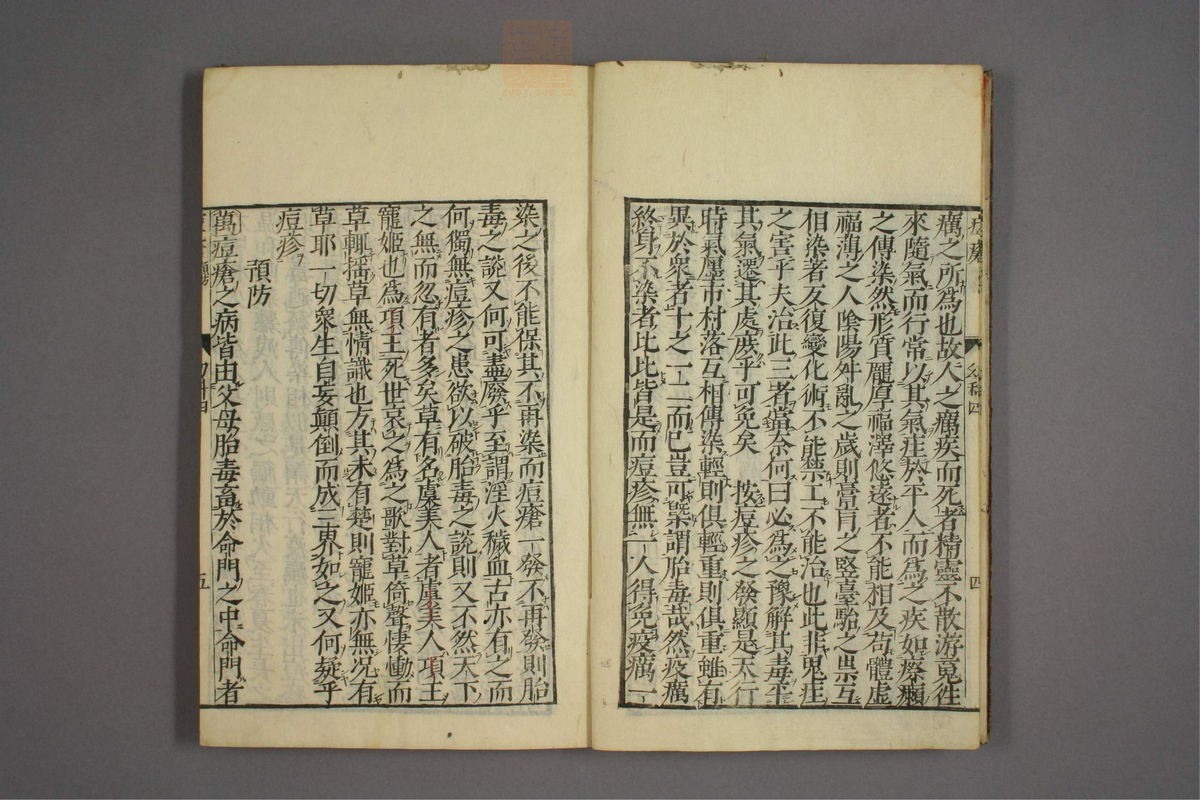 癘之所為也故人之癘疾而死者精靈不散游䰟徃
來隨氣而行常以其氣疰於平人而為之疾如瘵癩
之傳染然形質龐厚福澤悠遠者不能相及苟體虛
福薄之人陰陽舛亂之歲則膏肓之竪臺駘之祟互
相染著反復變化術不能禁工不能治也此非鬼疰
之害乎夫治此三者當奈何曰必為之豫解其毒平
其氣遷其處庶乎可免矣 按痘疹之發顯是天行
時氣廛市村落互相傳染輕則俱輕重則俱重雖有
異於衆者十之一二而已豈可槩謂胎毒哉然疫癘
終身不染者比比皆是而痘疹無一人得免疫癘一
四
染之後不能保其不再染而痘瘡一發不再發則胎
毒之說又何可盡廢乎至謂淫火穢血古亦有之而
何獨無痘疹之患欲以破胎毒之說則又不然天下
之無而忽有者多矣草有名虞美人者虞美人項王
寵姬也為項王死世哀之為之歌對草倚聲悽慟而
草輒揺草無情識也方其未有楚則寵姬亦無況有
草耶一切衆生自妄顛倒而成三界如之又何疑乎
痘疹
預防
萬痘瘡之病皆由父母胎毒畜於命門之中命門者
五